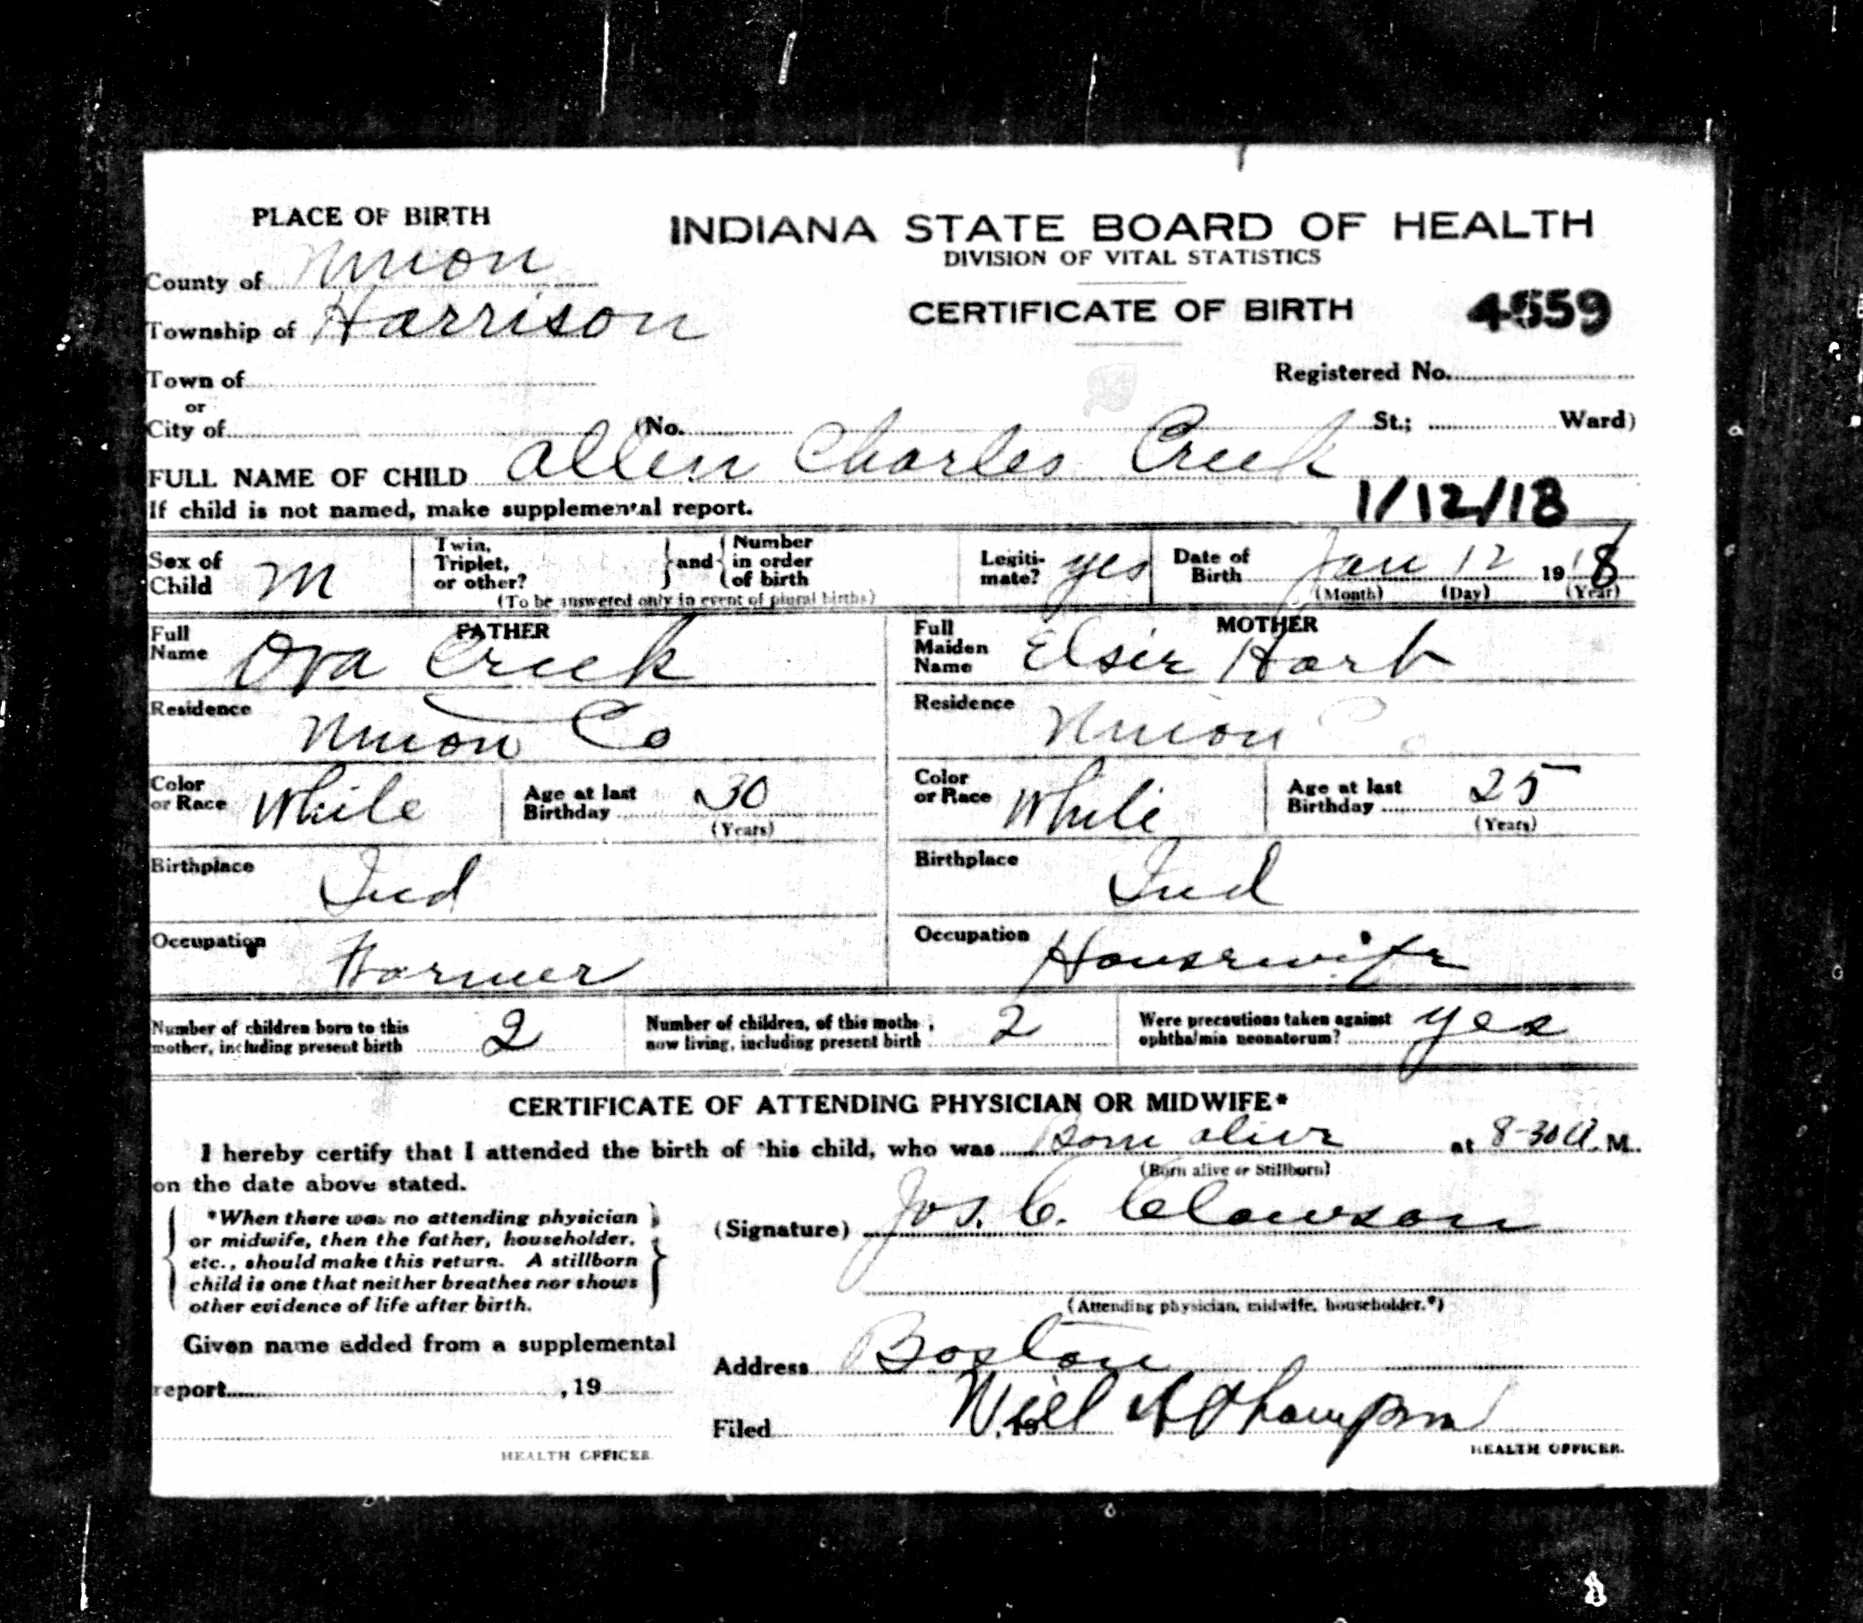 PLACE OF BIRTH
INDIANA STATE BOARD OF HEALTH
DIVISION OF VITAL STATISTICS
CERTIFICATE OF BIRTH
4559
County of Union
Township of Harrison
Town of
or
City of
Registered No.
(No. St.; Ward)
FULL NAME OF CHILD Allen Charles Creek
If child is not named, make supplemental report.
1/12/18
Sex of Child M
Twin, Triplet, or other?
and
Number in order of birth
(To be answered only in event of plural births)
Legitimate? yes
Date of Birth Jan 12 1918
(Month) (Day) (Year)
FATHER
Full Name Ora Creek
Residence Union Co
Color or Race White
Age at last Birthday 30
(Years)
Birthplace Ind
Occupation Farmer
MOTHER
Full Maiden Name Elsie Harb
Residence Union Co
Color or Race White
Age at last Birthday 25
(Years)
Birthplace Ind
Occupation Housewife
Number of children born to this mother, including present birth 2
Number of children, of this mother, now living, including present birth 2
Were precautions taken against ophthalmia neonatorum? yes
CERTIFICATE OF ATTENDING PHYSICIAN OR MIDWIFE*
I hereby certify that I attended the birth of this child, who was Born alive at 8-30 A. M.
(Born alive or Stillborn)
on the date above stated.
*When there was no attending physician
or midwife, then the father, householder,
etc., should make this return. A stillborn
child is one that neither breathes nor shows
other evidence of life after birth.
(Signature) Jos. C. Clawson
(Attending physician, midwife, householder.*)
Given name added from a supplemental
report , 19
HEALTH OFFICER.
Address Boston
Filed , 19 Will A Thompson
HEALTH OFFICER.